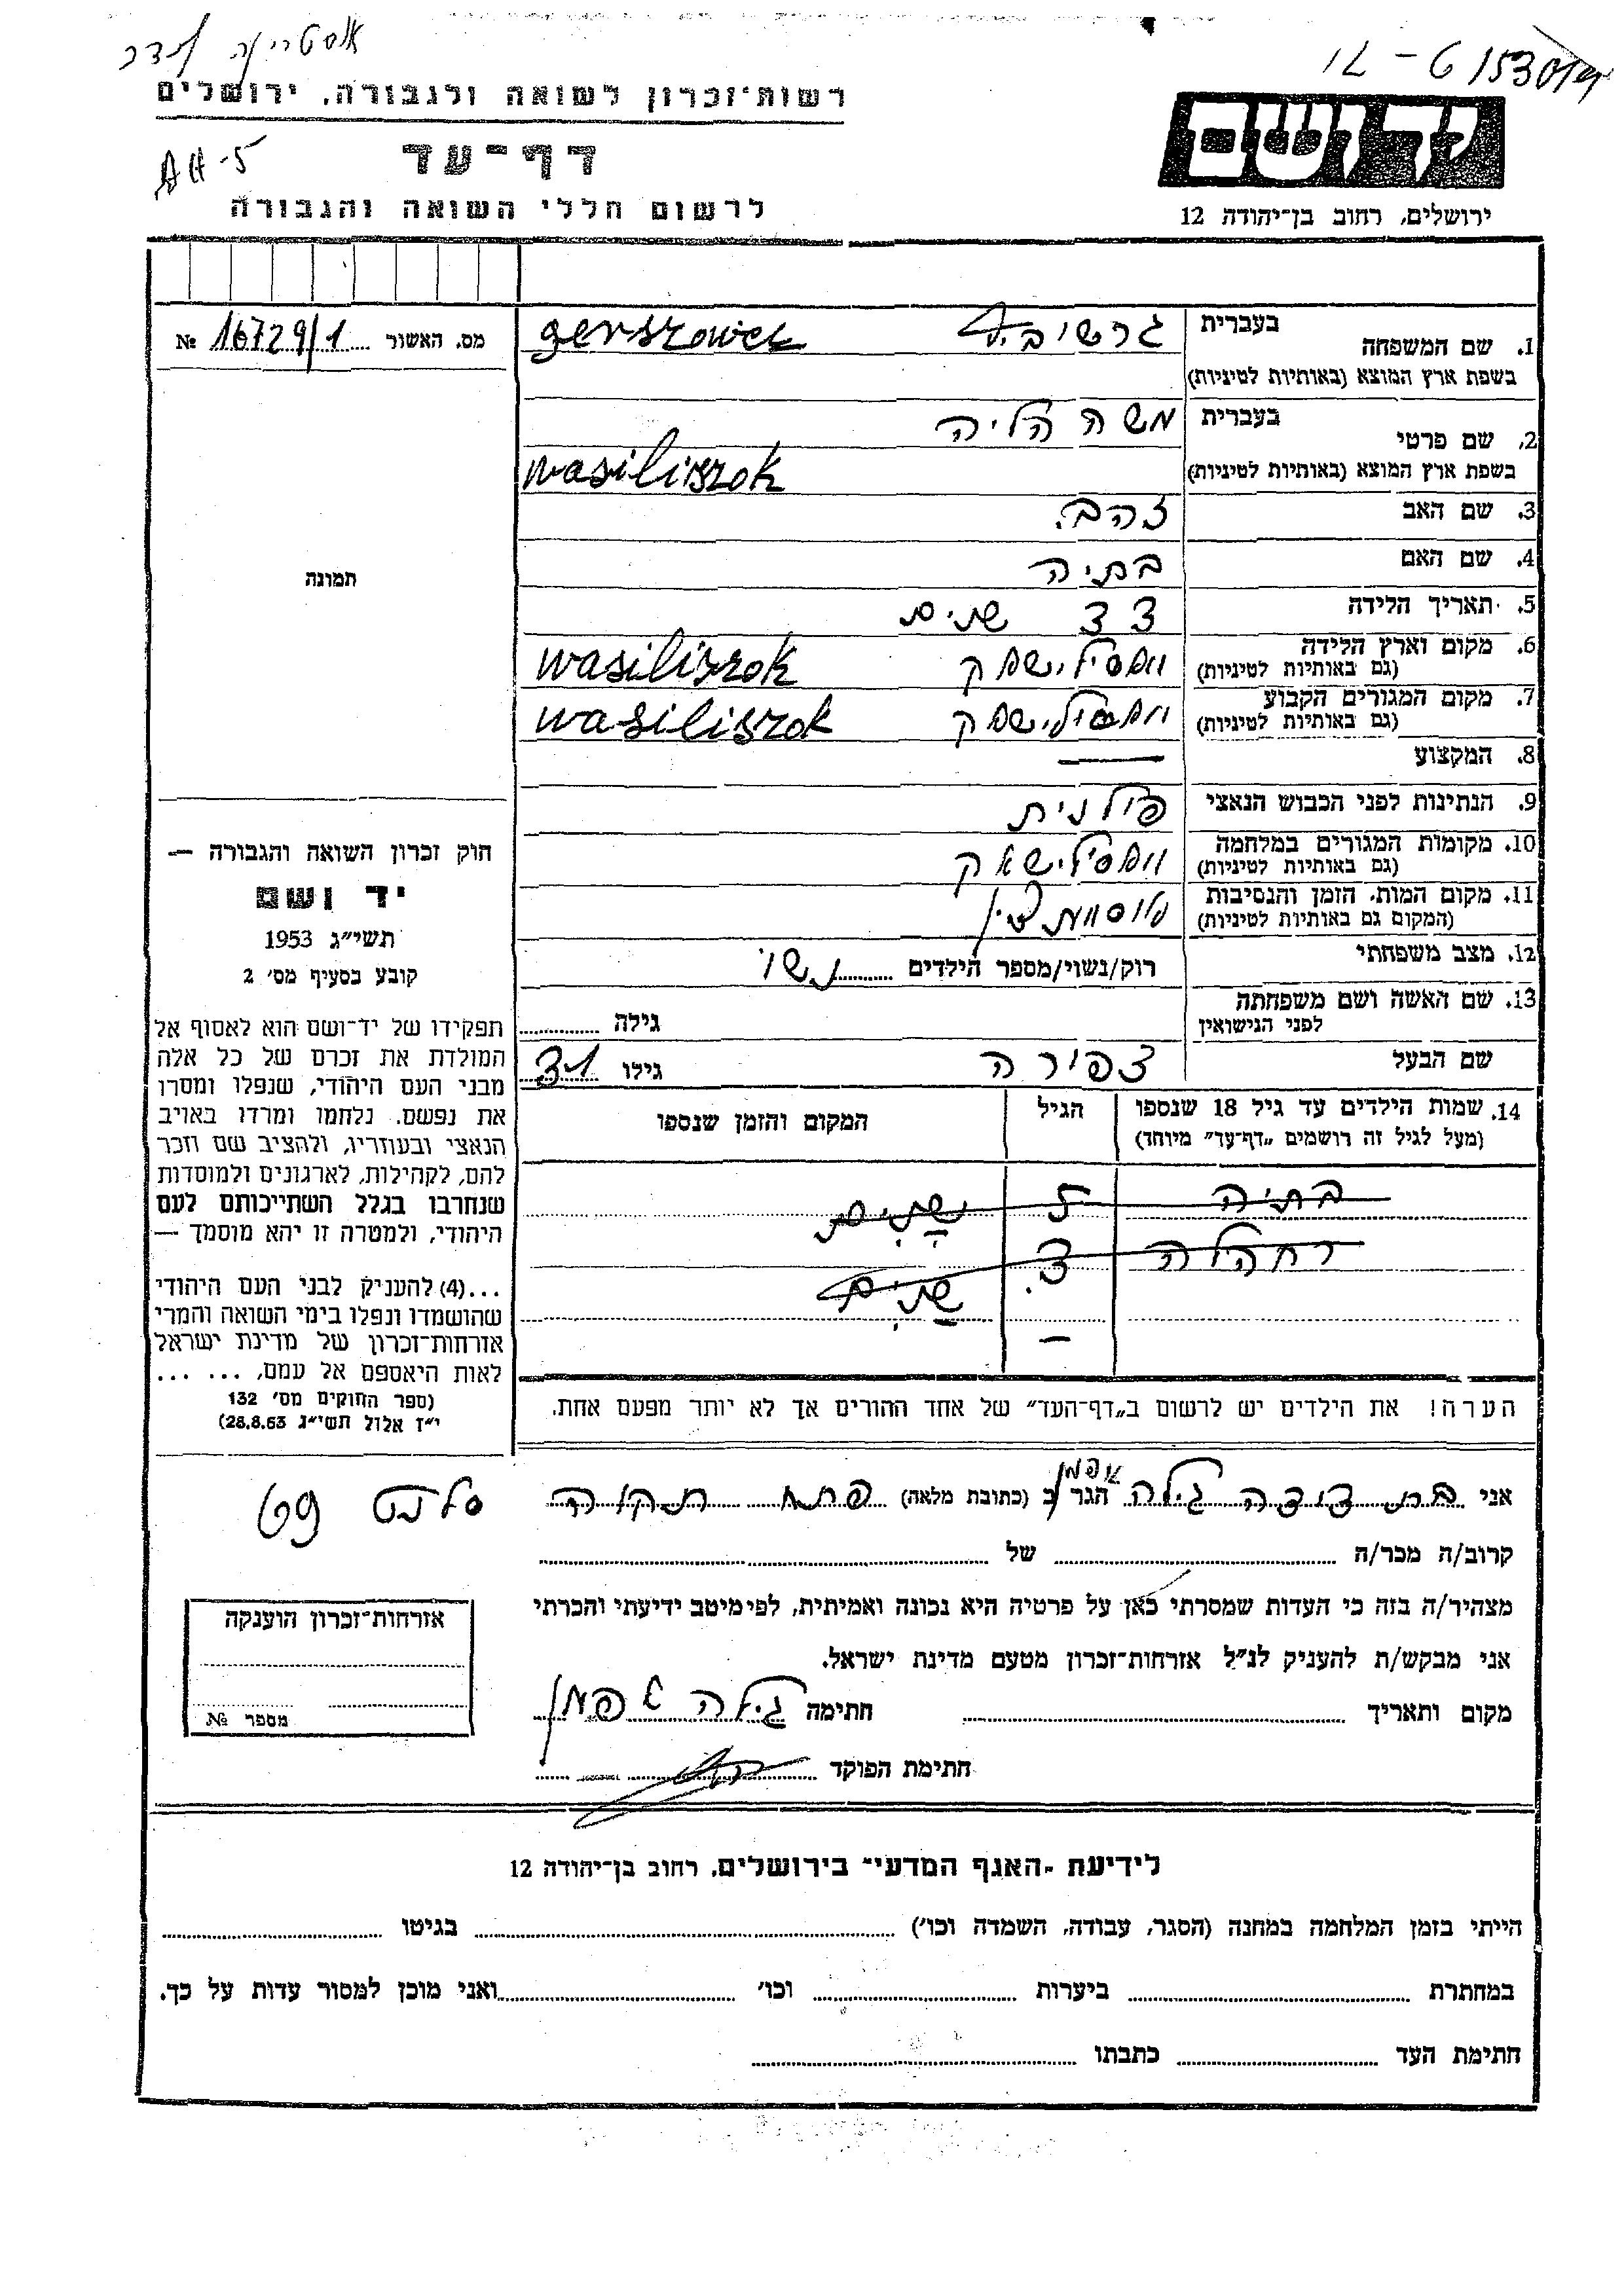 רשות־זכרון לשואה ולגבורה, ירושלים
AH-5
דף־עד
לרשום חללי השואה והגבורה
ידושם
ירושלים, רחוב בן־יהודה 12
מס. האשור 16729/1 №
1. שם המשפחה
בעברית
בשפת ארץ המוצא (באותיות לטיניות)
gerszowek
2. שם פרטי
בעברית משה
בשפת ארץ המוצא (באותיות לטיניות)
wasiliszok
3. שם האב זהב.
4. שם האם בתיה
5. תאריך הלידה שנים
6. מקום וארץ הלידה
(גם באותיות לטיניות) וואסילישאק wasiliszok
7. מקום המגורים הקבוע
(גם באותיות לטיניות) וואסילישאק wasiliszok
8. המקצוע —
9. הנתינות לפני הכבוש הנאצי פולנית
10. מקומות המגורים במלחמה
(גם באותיות לטיניות) וואסילישאק
11. מקום המות, הזמן והנסיבות
(המקום גם באותיות לטיניות)
12. מצב משפחתי רוק/נשוי/מספר הילדים נשוי
13. שם האשה ושם משפחתה
לפני הנישואין
גילה
שם הבעל צפורה גילו
14. שמות הילדים עד גיל 18 שנספו
(מעל לגיל זה רושמים „דף־עד״ מיוחד)
הגיל
המקום והזמן שנספו
בתיה 5 שנים
רחלה שנים
—
הערה! את הילדים יש לרשום ב„דף־העד״ של אחד ההורים אך לא יותר מפעם אחת.
תמונה
חוק זכרון השואה והגבורה —
יד ושם
תשי״ג 1953
קובע בסעיף מס׳ 2
תפקידו של יד־ושם הוא לאסוף אל
המולדת את זכרם של כל אלה
מבני העם היהודי, שנפלו ומסרו
את נפשם. נלחמו ומרדו באויב
הנאצי ובעוזריו, ולהציב שם וזכר
להם, לקהילות, לארגונים ולמוסדות
שנחרבו בגלל השתייכותם לעם
היהודי, ולמטרה זו יהא מוסמך —
...(4) להעניק לבני העם היהודי
שהושמדו ונפלו בימי השואה והמרי
אזרחות־זכרון של מדינת ישראל
לאות היאספם אל עמם, ... ...
(ספר החוקים מס׳ 132
י״ז אלול תשי״ג 28.8.53)
אני גילה הגר ב (כתובת מלאה) פתח תקוה
קרוב/ה מכר/ה של
מצהיר/ה בזה כי העדות שמסרתי כאן על פרטיה היא נכונה ואמיתית, לפי מיטב ידיעתי והכרתי
אני מבקש/ת להעניק לנ״ל אזרחות־זכרון מטעם מדינת ישראל.
מקום ותאריך חתימה גילה
חתימת הפוקד
אזרחות־זכרון הוענקה
מספר №
לידיעת ״האגף המדעי״ בירושלים, רחוב בן־יהודה 12
הייתי בזמן המלחמה במחנה (הסגר, עבודה, השמדה וכו׳) בגיטו
במחתרת ביערות וכו׳ ואני מוכן למסור עדות על כך.
חתימת העד כתבתו